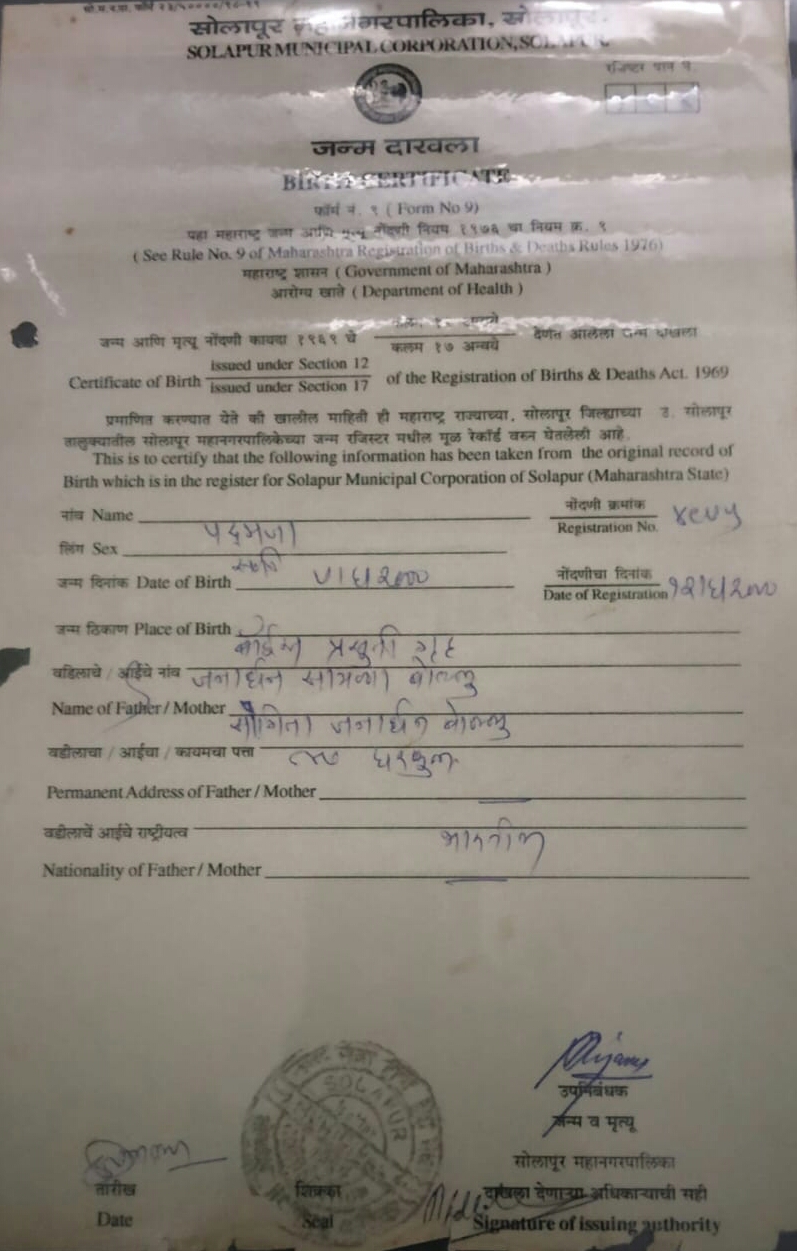 सोलापूर महानगरपालिका, सोलापूर.
SOLAPUR MUNICIPAL CORPORATION, SOLAPUR
रजिष्टर पान नं.
जन्म दाखला
BIRTH CERTIFICATE
फॉर्म नं. ९ ( Form No 9)
पहा महाराष्ट्र जन्म आणि मृत्यू नोंदणी नियम १९७६ चा नियम क्र. ९
( See Rule No. 9 of Maharashtra Registration of Births & Deaths Rules 1976)
महाराष्ट्र शासन ( Government of Maharashtra )
आरोग्य खाते ( Department of Health )
जन्म आणि मृत्यू नोंदणी कायदा १९६९ चे कलम १२ अन्वये / कलम १७ अन्वये देणेत आलेला जन्म दाखला
Certificate of Birth issued under Section 12 / issued under Section 17 of the Registration of Births & Deaths Act. 1969
प्रमाणित करण्यात येते की खालील माहिती ही महाराष्ट्र राज्याच्या, सोलापूर जिल्ह्याच्या उ. सोलापूर
तालुक्यातील सोलापूर महानगरपालिकेच्या जन्म रजिस्टर मधील मूळ रेकॉर्ड वरुन घेतलेली आहे.
This is to certify that the following information has been taken from the original record of
Birth which is in the register for Solapur Municipal Corporation of Solapur (Maharashtra State)
नांव Name पद्मजा नोंदणी क्रमांक Registration No.
लिंग Sex स्त्री
जन्म दिनांक Date of Birth नोंदणीचा दिनांक Date of Registration
जन्म ठिकाण Place of Birth प्रसुती गृह
वडिलाचे / आईचे नांव जनार्धन बोल्लु
Name of Father / Mother जनार्धन बोल्लु
वडीलाचा / आईचा / कायमचा पत्ता घरकुल
Permanent Address of Father / Mother
वडीलाचें आईचे राष्ट्रीयत्व भारतीय
Nationality of Father / Mother
SOLAPUR
उपनिबंधक
जन्म व मृत्यू
सोलापूर महानगरपालिका
तारीख शिक्का दाखला देणाऱ्या अधिकाऱ्याची सही
Date Seal Signature of issuing authority